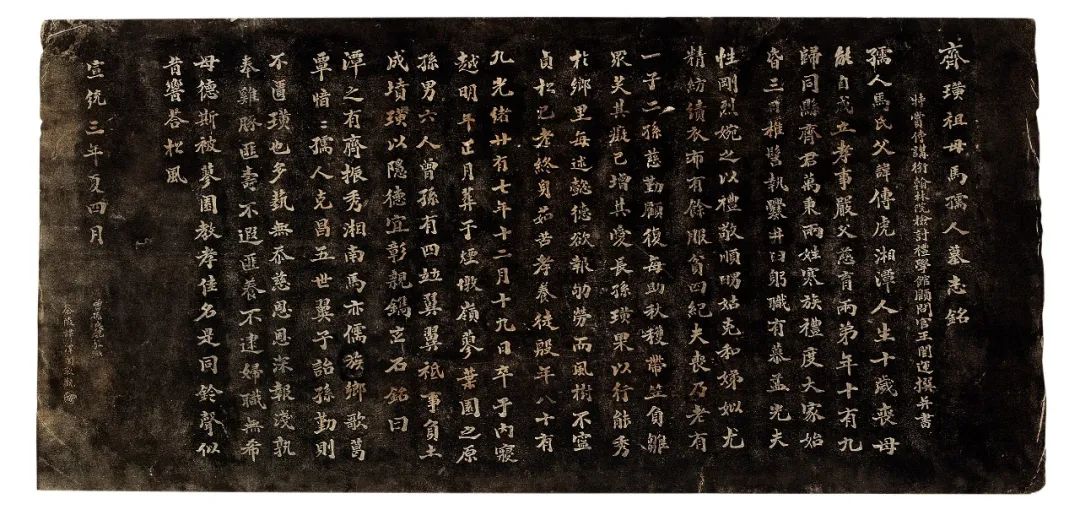 齊璜祖母馬孺人墓志銘
特賞侍講銜翰林院檢討禮學館顧問官王闓運撰并書
孺人馬氏父諱傳虎湘潭人生十歲喪母
能自成立孝事嚴父慈育兩弟年十有九
歸同縣齊君萬秉兩姓寒族禮度大家始
昏三日椎髻執爨井臼躬職有慕孟光夫
性剛烈婉之以禮敬順嫜姑克和娣姒尤
精紡績衣布有餘服貧四紀夫喪乃老有
一子二孫慈勤顧復每助秋穫帶笠負雛
眾笑其癡己增其愛長孫璜果以行能秀
於鄉里每述懿德欲報劬勞而風樹不寧
貞松已老終身茹苦孝養徒殷年八十有
九光緒廿有七年十二月十九日卒于內寢
越明年正月葬于煙墩嶺蓼葉園之原
孫男六人曾孫有四竝翼翼祗事負土
成墳璜以隱德宜彰親鐫玄石銘曰
潭之有齊振秀湘南馬亦儒族鄉歌葛
覃愔愔孺人克昌五世翼子詒孫勤則
不匱璜也多埶無忝慈恩恩深報淺孰
奉雞豚匪壽不遐匪養不逮婦職無希
母德斯被蓼園教孝佳名是同鈴聲似
昔響荅松風
宣統三年夏四月